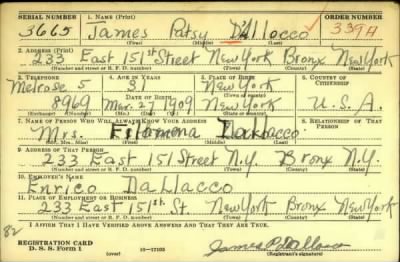 SERIAL NUMBER 1. NAME (Print) ORDER NUMBER
3665 James Patsy D'Allocco 3394
(First) (Middle) (Last)
2. ADDRESS (Print)
233 East 151st Street New York Bronx New York
(Number and street or R. F. D. number) (Town) (County) (State)
3. TELEPHONE 4. AGE IN YEARS 5. PLACE OF BIRTH 6. COUNTRY OF CITIZENSHIP
Melrose 5 31 New York
DATE OF BIRTH (Town or county)
8969 Mar. 27 1909 New York U.S.A.
(Exchange) (Number) (Mo.) (Day) (Yr.) (State or country)
7. NAME OF PERSON WHO WILL ALWAYS KNOW YOUR ADDRESS 8. RELATIONSHIP OF THAT PERSON
Mrs. Filomena Dallacco
(Mr., Mrs., Miss) (First) (Middle) (Last)
9. ADDRESS OF THAT PERSON
233 East 151 Street N.Y. Bronx N.Y.
(Number and street or R. F. D. number) (Town) (County) (State)
10. EMPLOYER'S NAME
Enrico DaLlacco
11. PLACE OF EMPLOYMENT OR BUSINESS
233 East 151st St. New York Bronx New York
(Number and street or R. F. D. number) (Town) (County) (State)
I AFFIRM THAT I HAVE VERIFIED ABOVE ANSWERS AND THAT THEY ARE TRUE.
82
REGISTRATION CARD
D. S. S. Form 1 (over) 16—17105 (Registrant's signature)